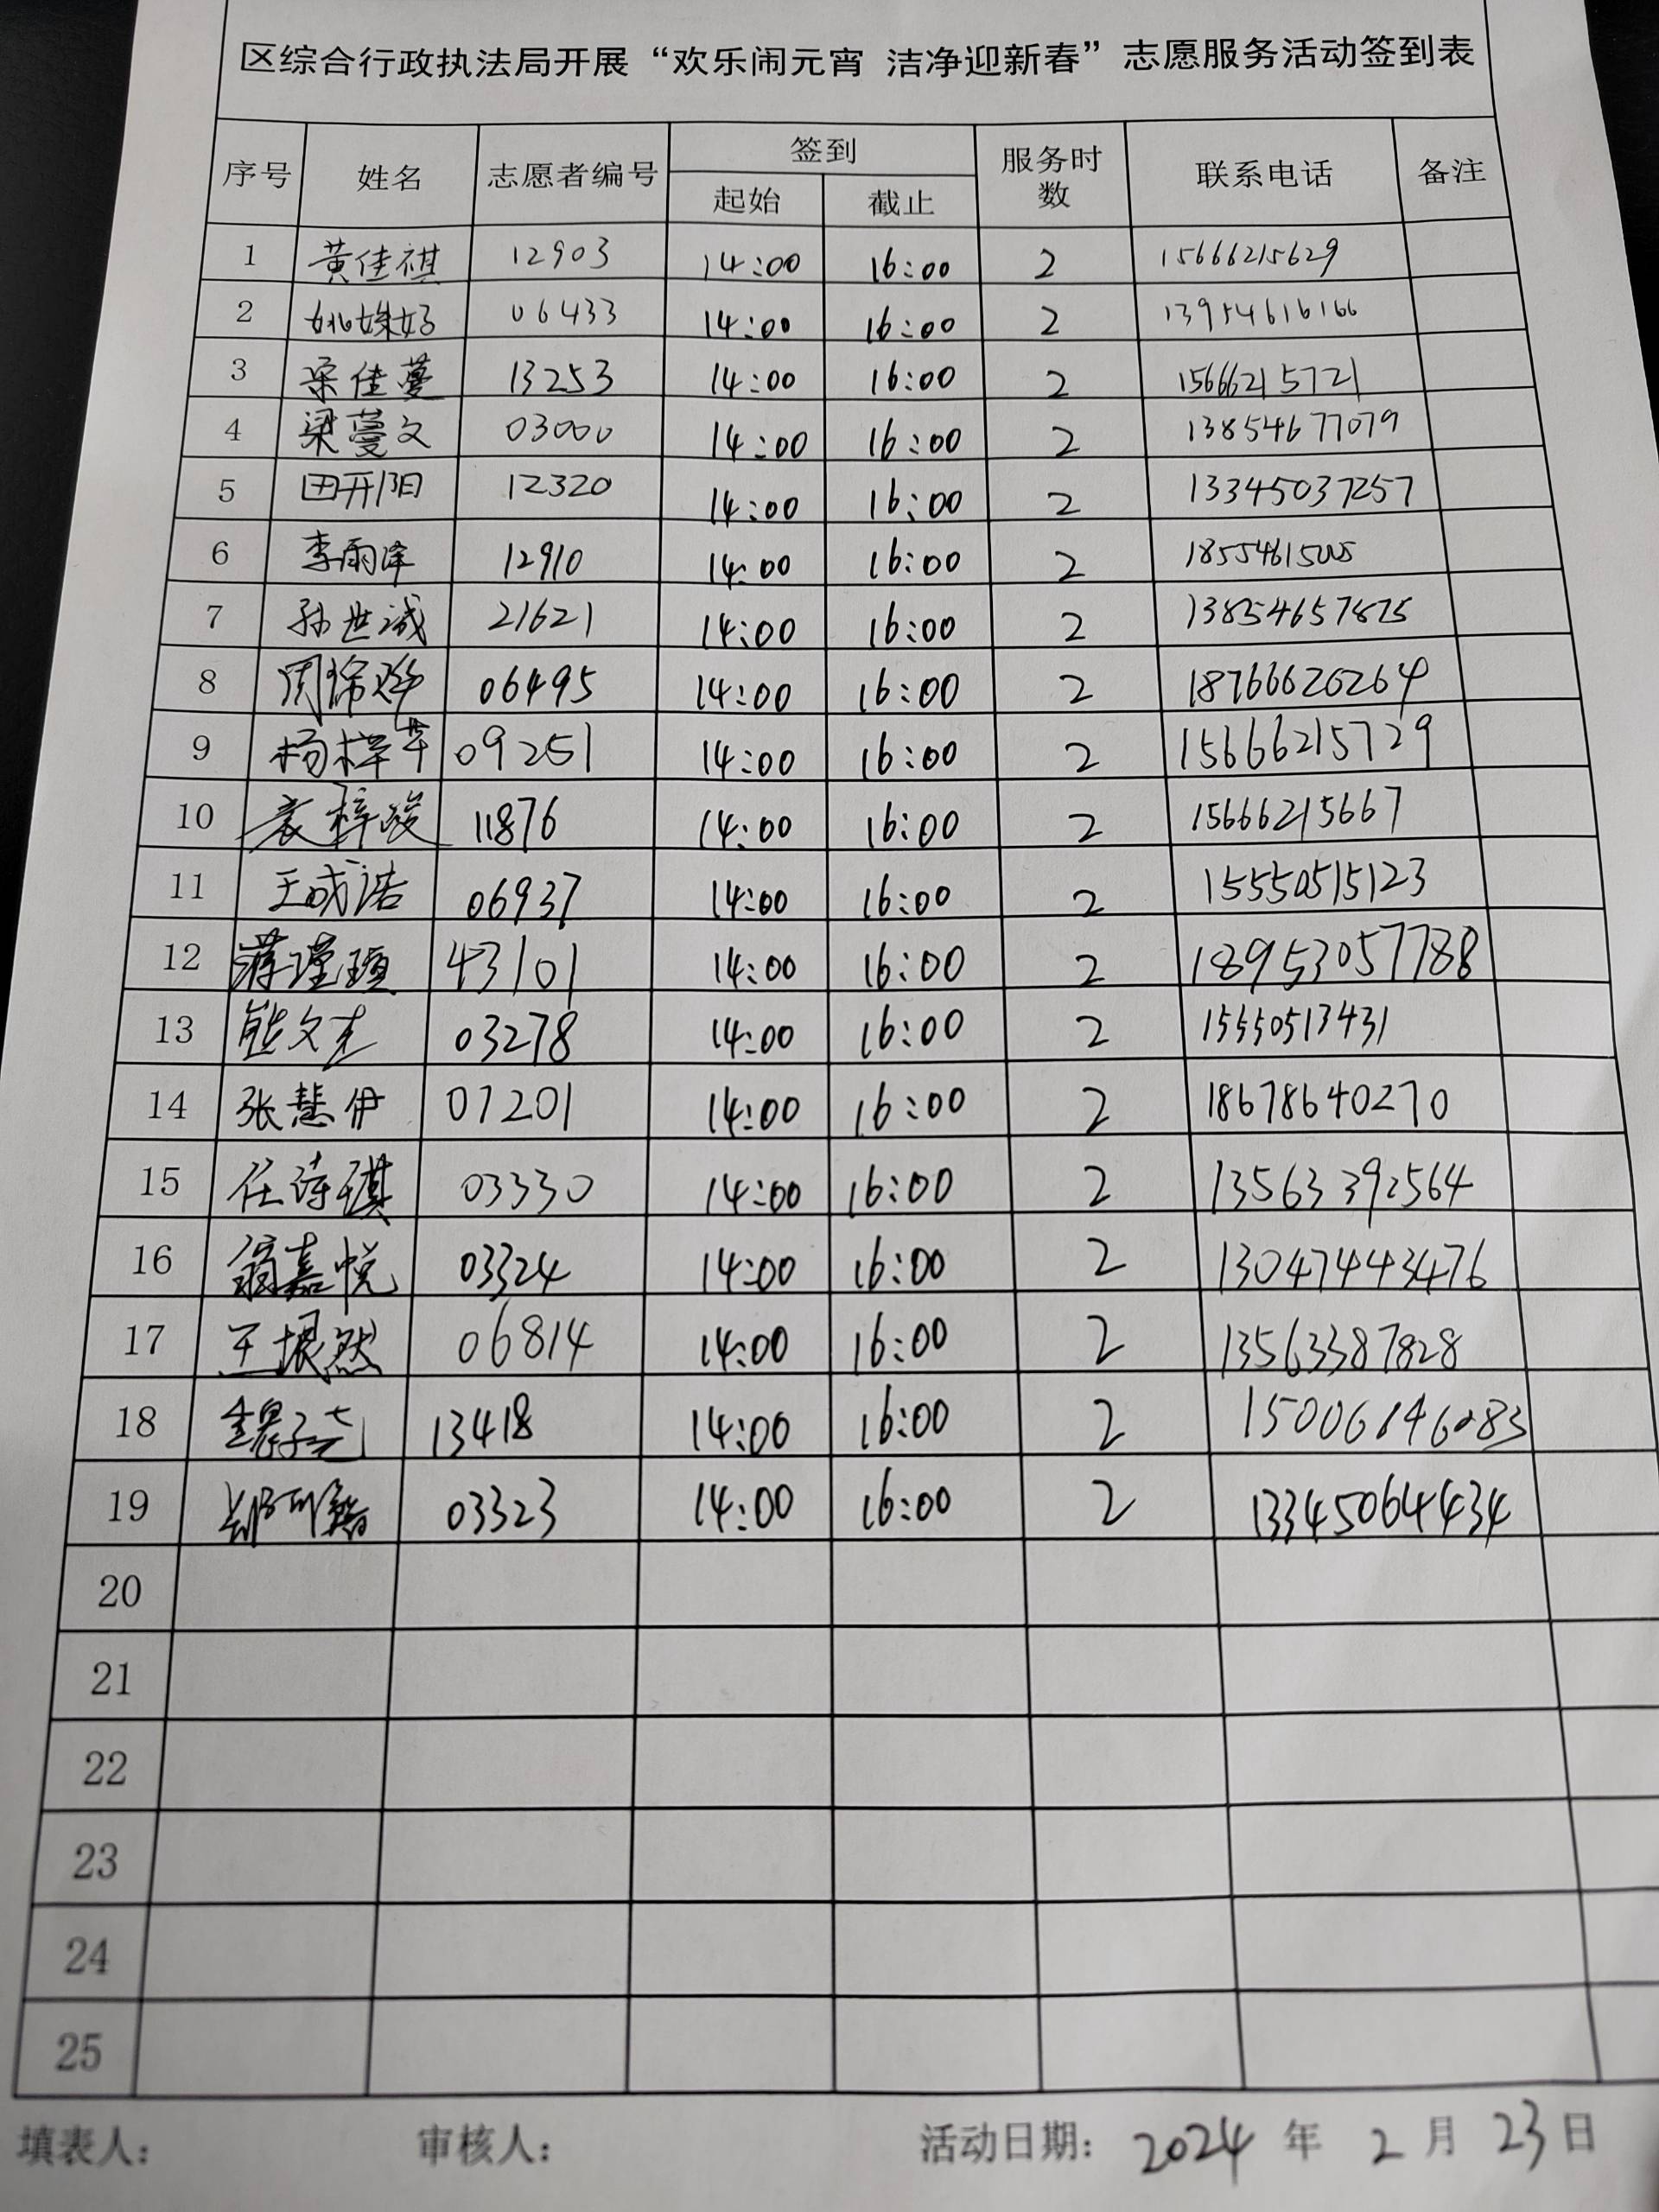 区综合行政执法局开展“欢乐闹元宵 洁净迎新春”志愿服务活动签到表
序号 姓名 志愿者编号 签到 服务时数 联系电话 备注
起始 截止
1 黄佳祺 12903 14:00 16:00 2 15666215629
2 姚姝好 06433 14:00 16:00 2 13954616166
3 宋佳蔓 13253 14:00 16:00 2 15666215721
4 梁蔓文 03000 14:00 16:00 2 13854677079
5 田开阳 12320 14:00 16:00 2 13345037257
6 李雨泽 12910 14:00 16:00 2
7 孙世诚 21621 14:00 16:00 2 13854657825
8 06495 14:00 16:00 2 18766620264
9 杨梓芊 09251 14:00 16:00 2 15666215729
10 袁梓峻 11876 14:00 16:00 2 15666215667
11 王成诺 06937 14:00 16:00 2 15550515123
12 蒋瑾瑄 43101 14:00 16:00 2 18953057788
13 熊文志 03278 14:00 16:00 2 15550513431
14 张慧伊 07201 14:00 16:00 2 18678640270
15 任诗琪 03330 14:00 16:00 2 13563392564
16 嘉悦 03324 14:00 16:00 2 13047443476
17 王垠然 06814 14:00 16:00 2 13563387828
18 13418 14:00 16:00 2 15006846083
19 03323 14:00 16:00 2 13345064434
20
21
22
23
24
25
填表人: 审核人: 活动日期: 2024 年 2 月 23 日